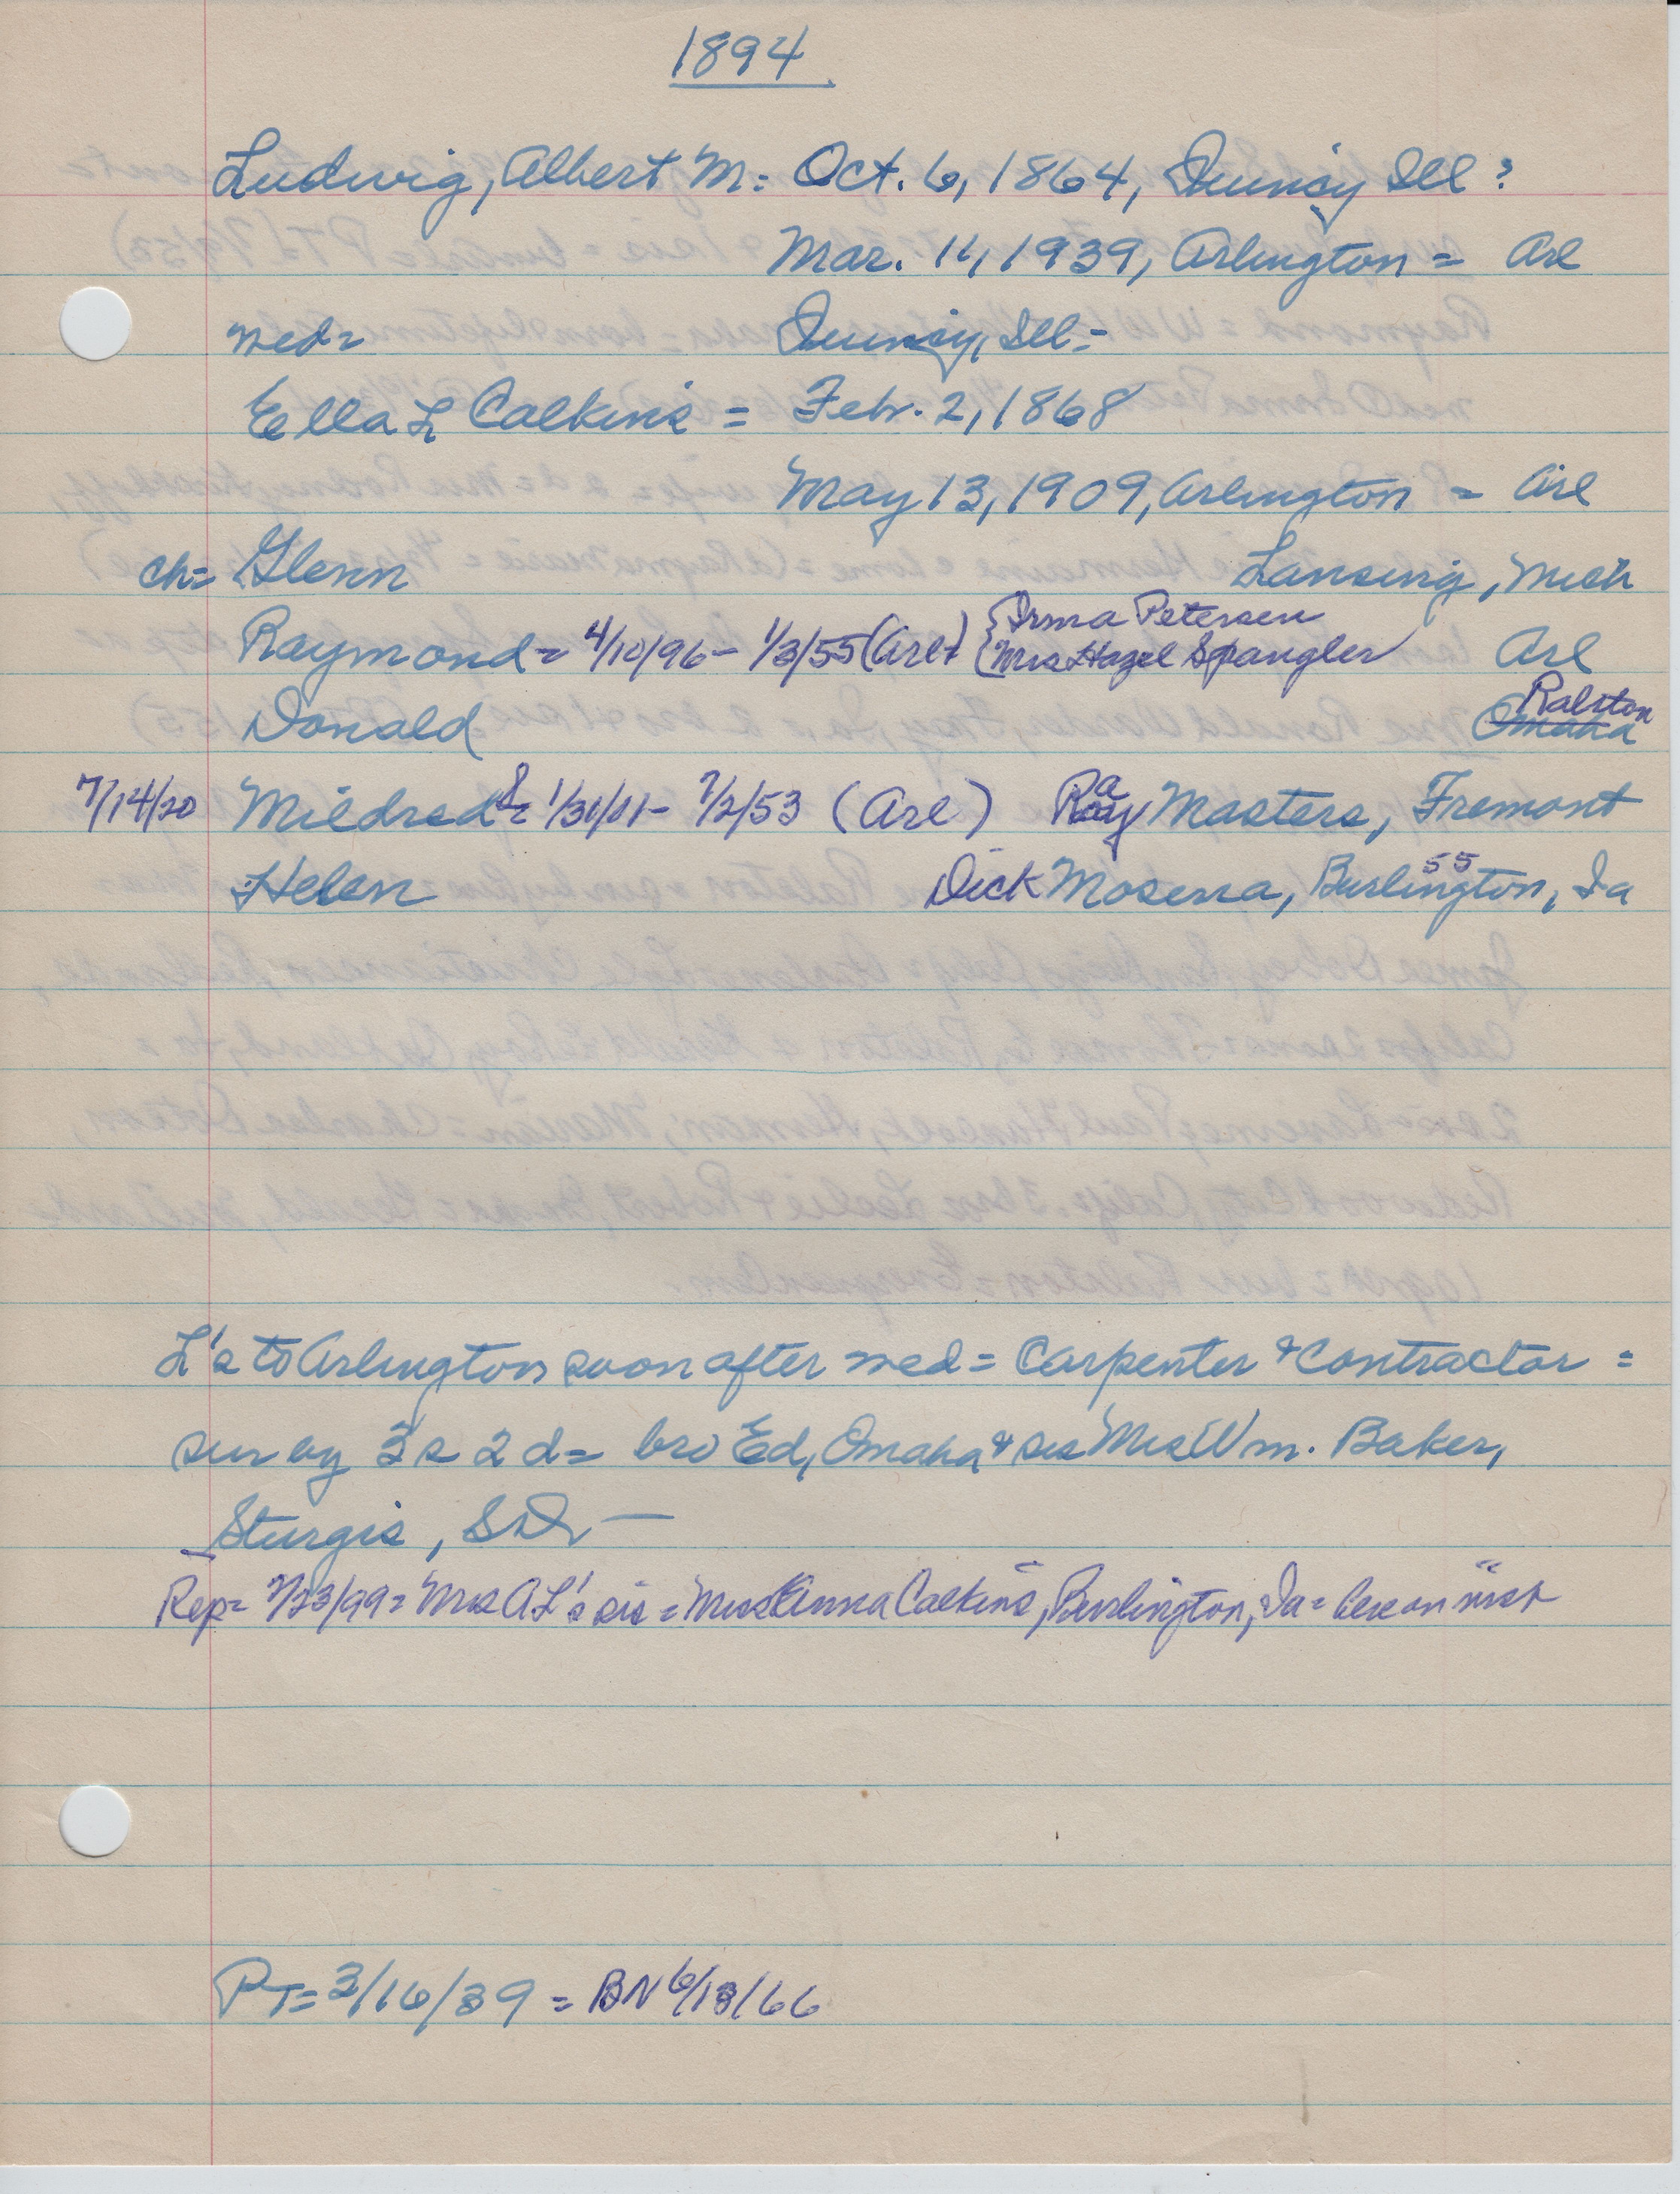 1894
Ludwig, Albert M: Oct. 6, 1864, Quincy Ill?
Mar. 11, 1939, Arlington = Arl
wed= Quincy, Ill=
Ella L Calkins = Febr. 2, 1868
May 13, 1909, Arlington = Arl
ch= Glenn Lansing, Mich
Raymond= 4/10/96- 1/3/55 (Arl+) {Irma Petersen
{Mrs Hazel Spangler Arl
Donald Omaha Ralston
7/14/20 Mildred = 1/31/01- 7/2/53 (Arl) Ray Masters, Fremont
Helen Dick Moserra, Burlington, Ia 55
L's to Arlington soon after wed= Carpenter & Contractor =
sur by 3 s 2 d= bro Ed, Omaha & sis Mrs Wm. Baker,
Sturgis, SD —
Rep= 7/23/99= Mrs AL's sis= Miss Anna Calkins, Burlington, Ia= here on visit
PT= 3/16/39 = BN 6/13/66